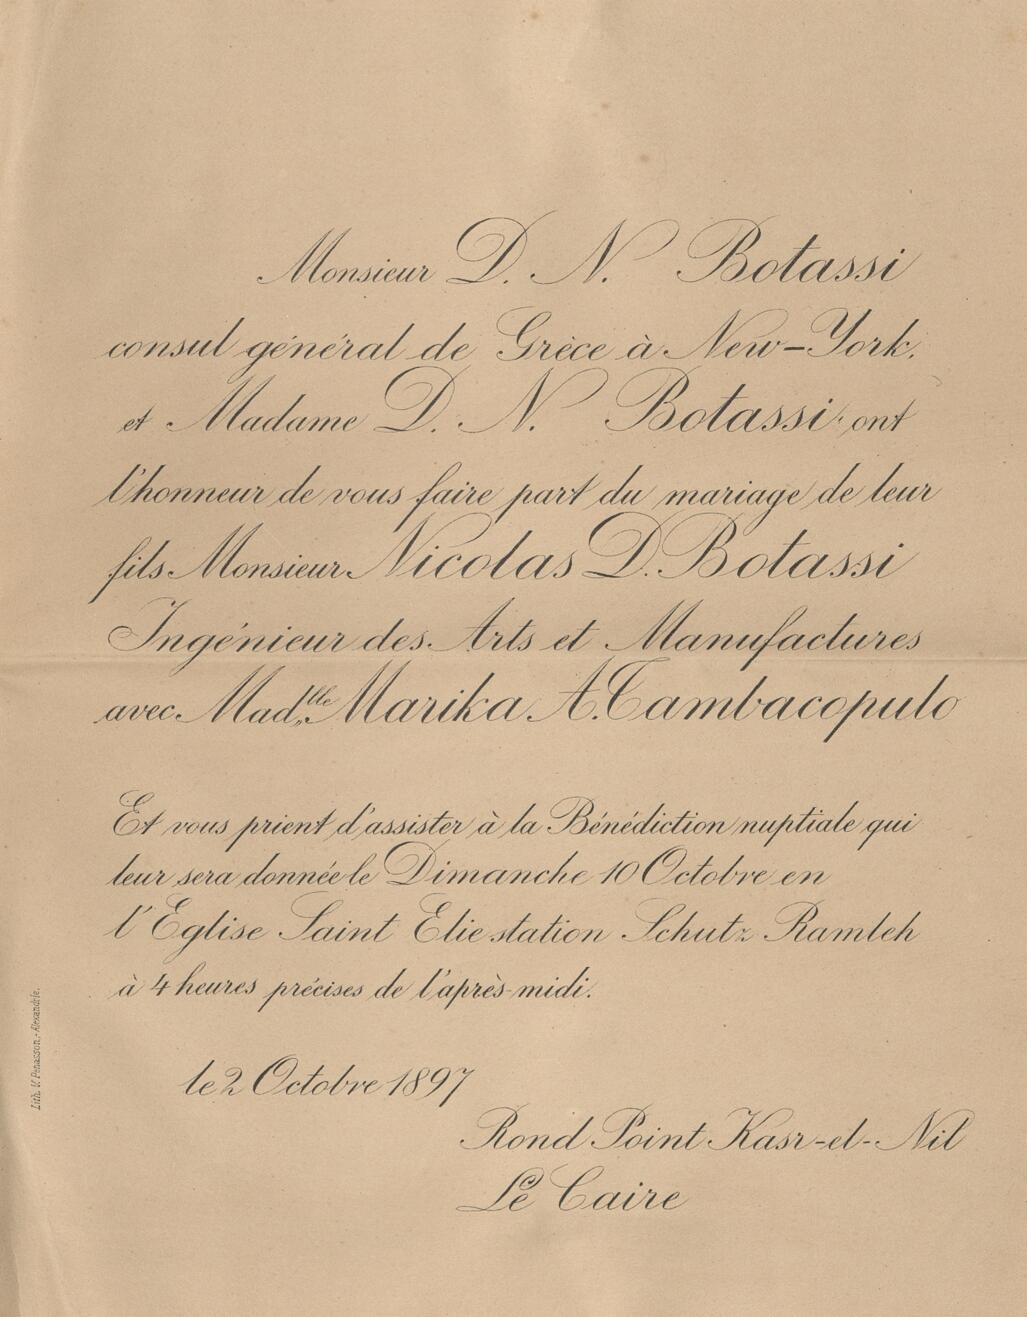 Monsieur D. N. Botassi
consul général de Grèce à New-York.
et Madame D. N. Botassi ont
l'honneur de vous faire part du mariage de leur
fils Monsieur Nicolas D. Botassi
Ingénieur des Arts et Manufactures
avec Mad.lle Marika A. Tambacopulo
Et vous prient d'assister à la Bénédiction nuptiale qui
leur sera donnée le Dimanche 10 Octobre en
l'Eglise Saint Elie station Schutz Ramleh
à 4 heures précises de l'après-midi.
le 2 Octobre 1897
Rond Point Kasr-el-Nil
Le Caire
Lith. V. Penasson.- Alexandrie.